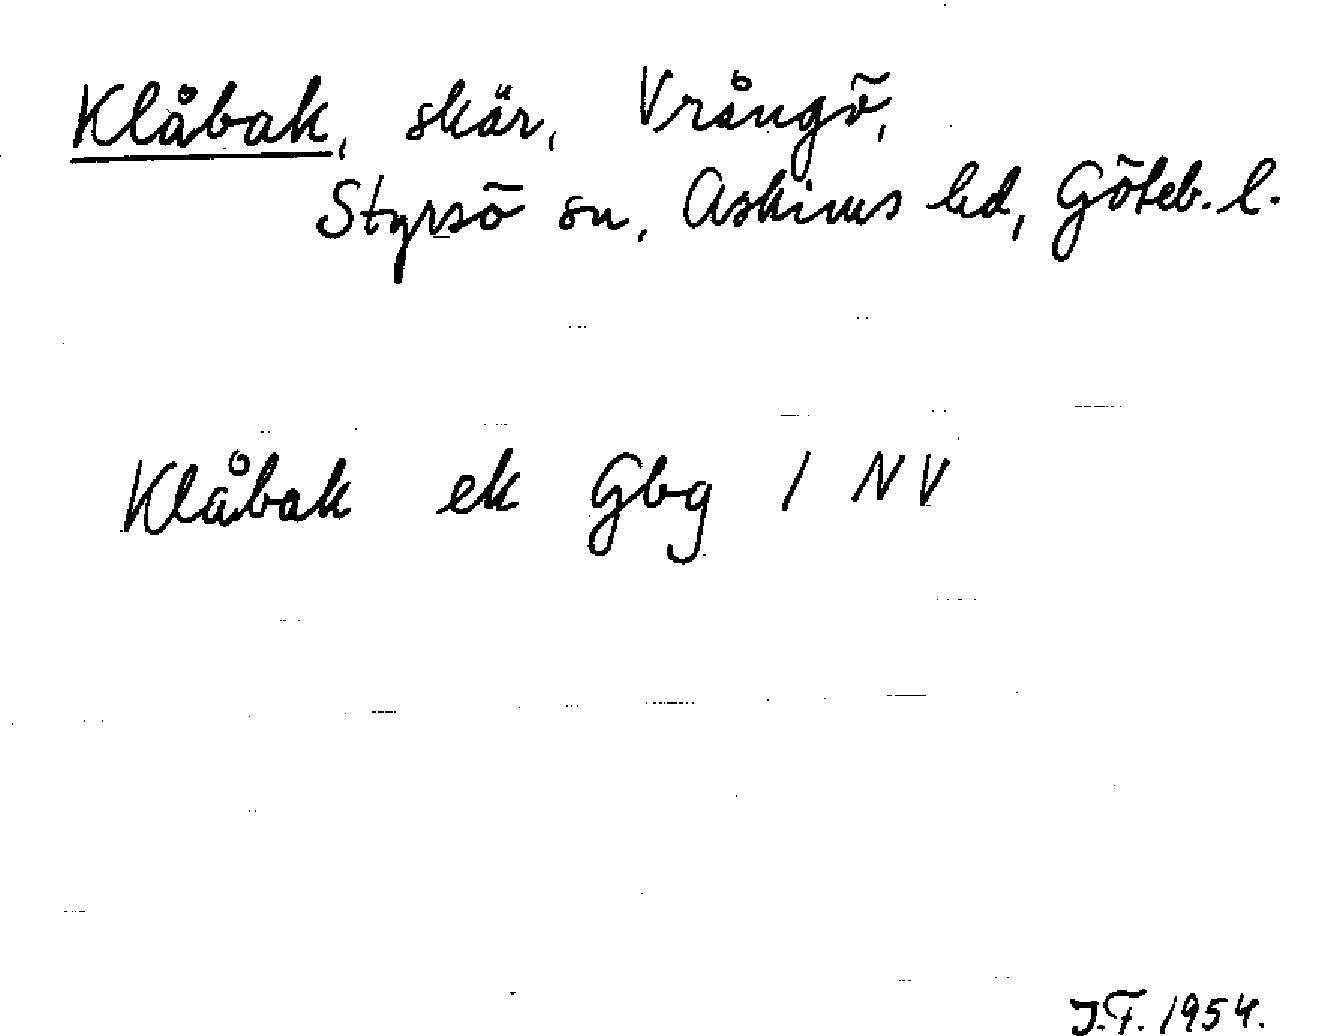 Klåbak, skär, Vrångö,
Styrsö sn, Askims hd, Göteb. l.
Klåbak ek Gbg 1 NV
J.F. 1954.